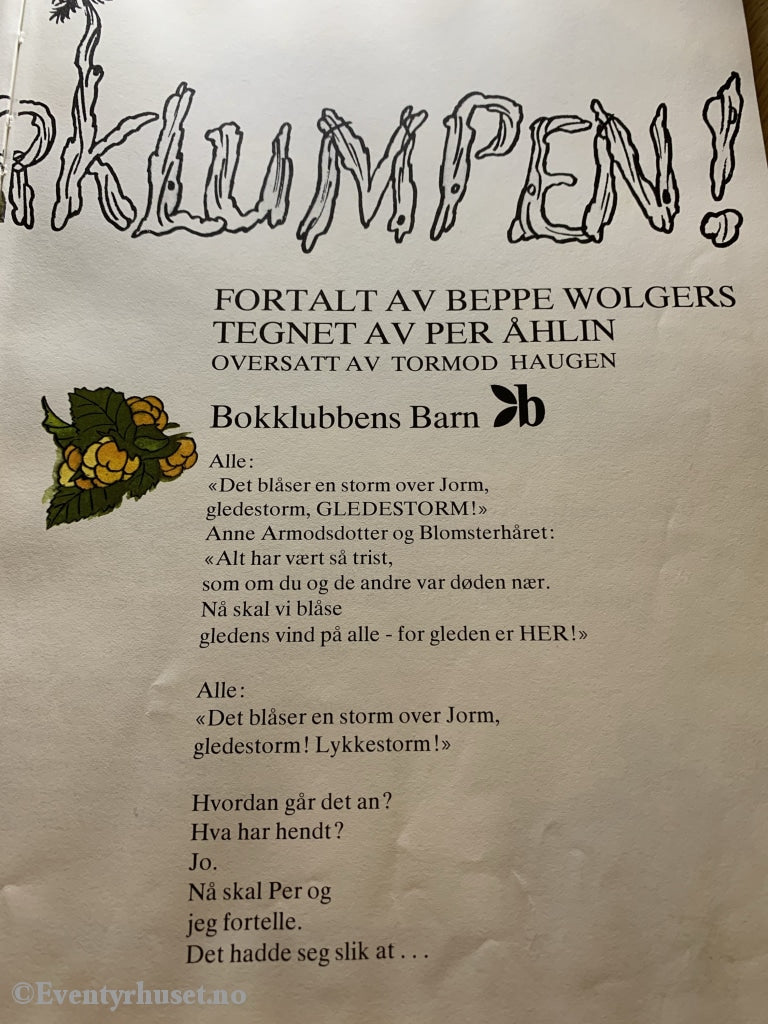 PKLUMPEN!
FORTALT AV BEPPE WOLGERS
TEGNET AV PER ÅHLIN
OVERSATT AV TORMOD HAUGEN
Bokklubbens Barn b
Alle:
«Det blåser en storm over Jorm,
gledestorm, GLEDESTORM!»
Anne Armodsdotter og Blomsterhåret:
«Alt har vært så trist,
som om du og de andre var døden nær.
Nå skal vi blåse
gledens vind på alle - for gleden er HER!»
Alle:
«Det blåser en storm over Jorm,
gledestorm! Lykkestorm!»
Hvordan går det an?
Hva har hendt?
Jo.
Nå skal Per og
jeg fortelle.
Det hadde seg slik at ...
©Eventyrhuset.no